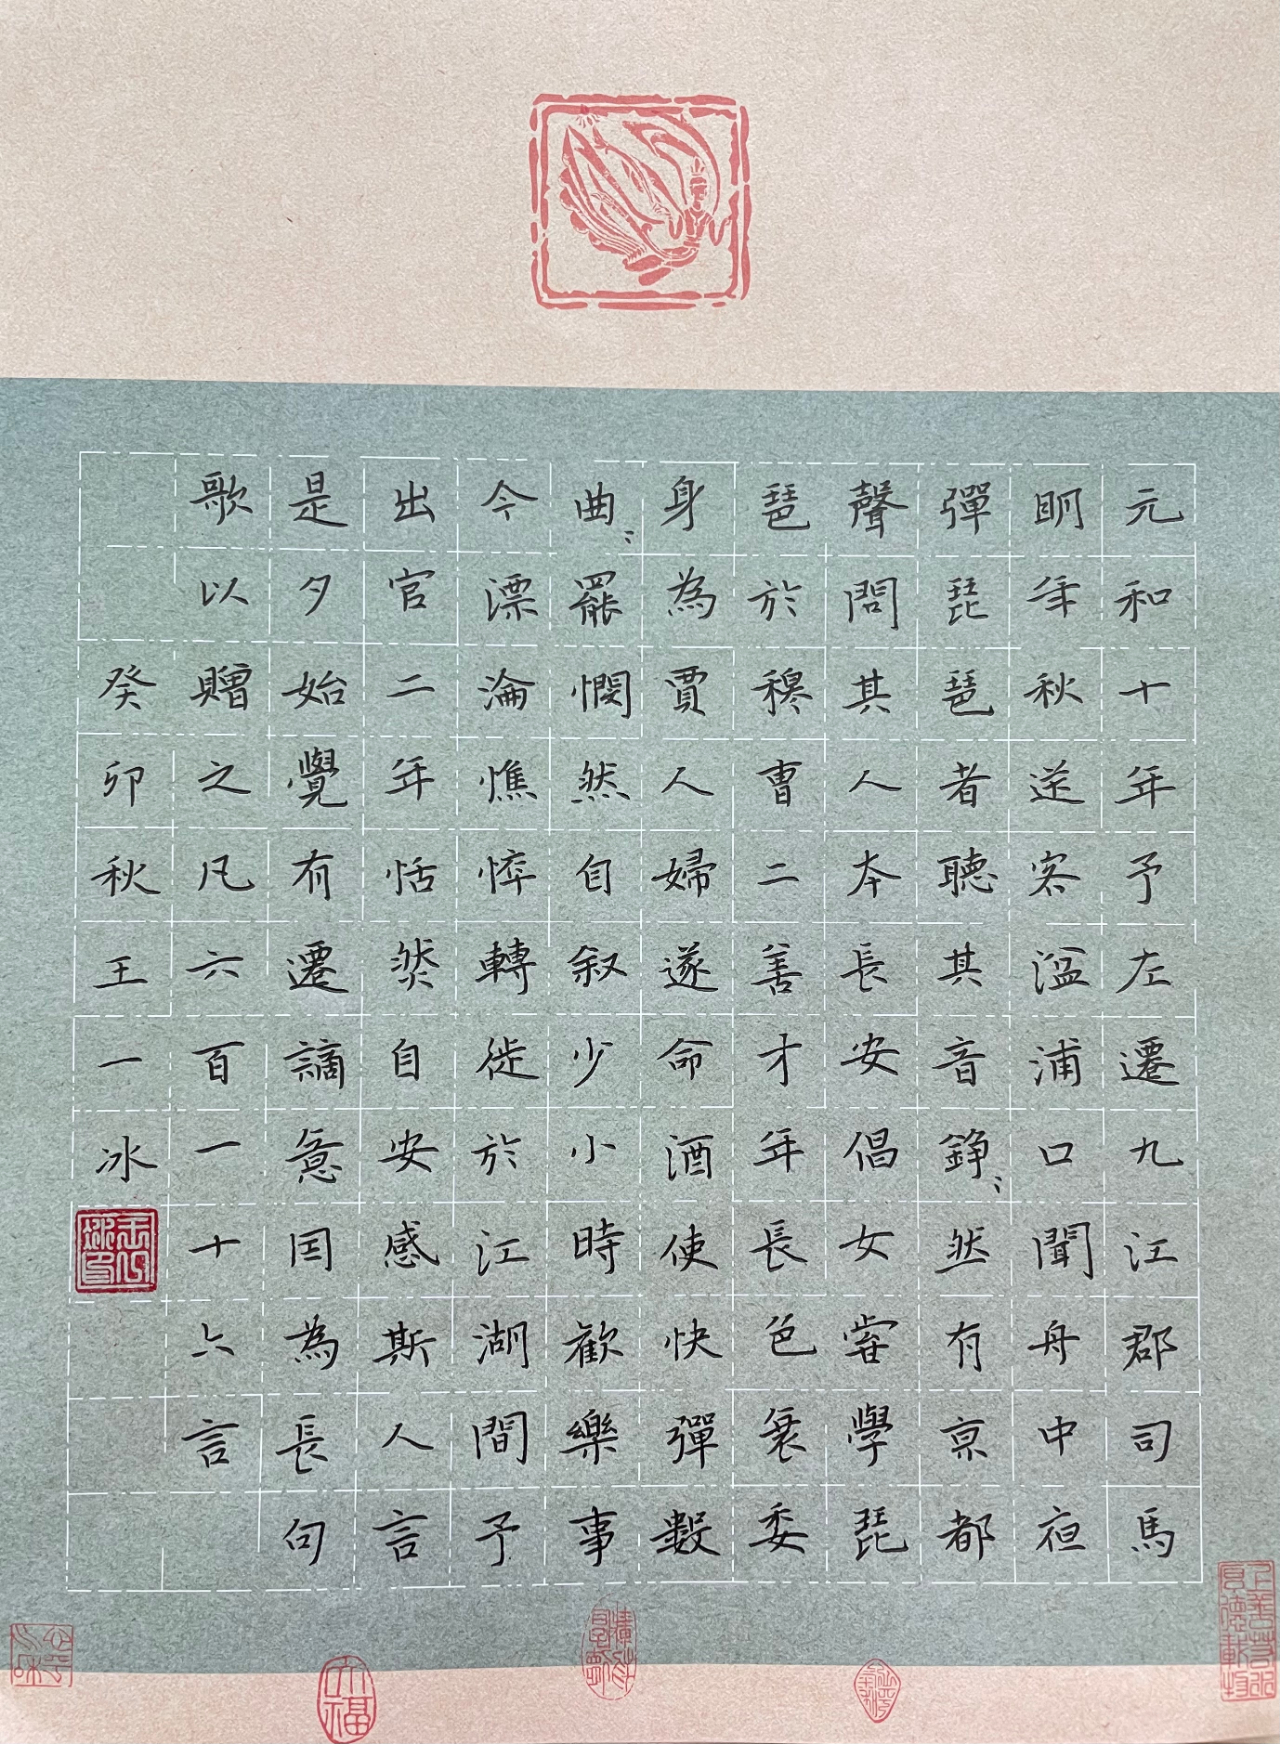 元和十年予左遷九江郡司馬
明年秋送客湓浦口聞舟中夜
彈琵琶者聽其音錚〻然有京都
聲問其人本長安倡女嘗學琵
琶於穆曹二善才年長色衰委
身為賈人婦遂命酒使快彈數
曲〻罷憫然自叙少小時歡樂事
今漂淪憔悴轉徙於江湖間予
出官二年恬然自安感斯人言
是夕始覺有遷謫意因為長句
歌以贈之凡六百一十六言
癸卯秋王一冰
上善若水厚德載物